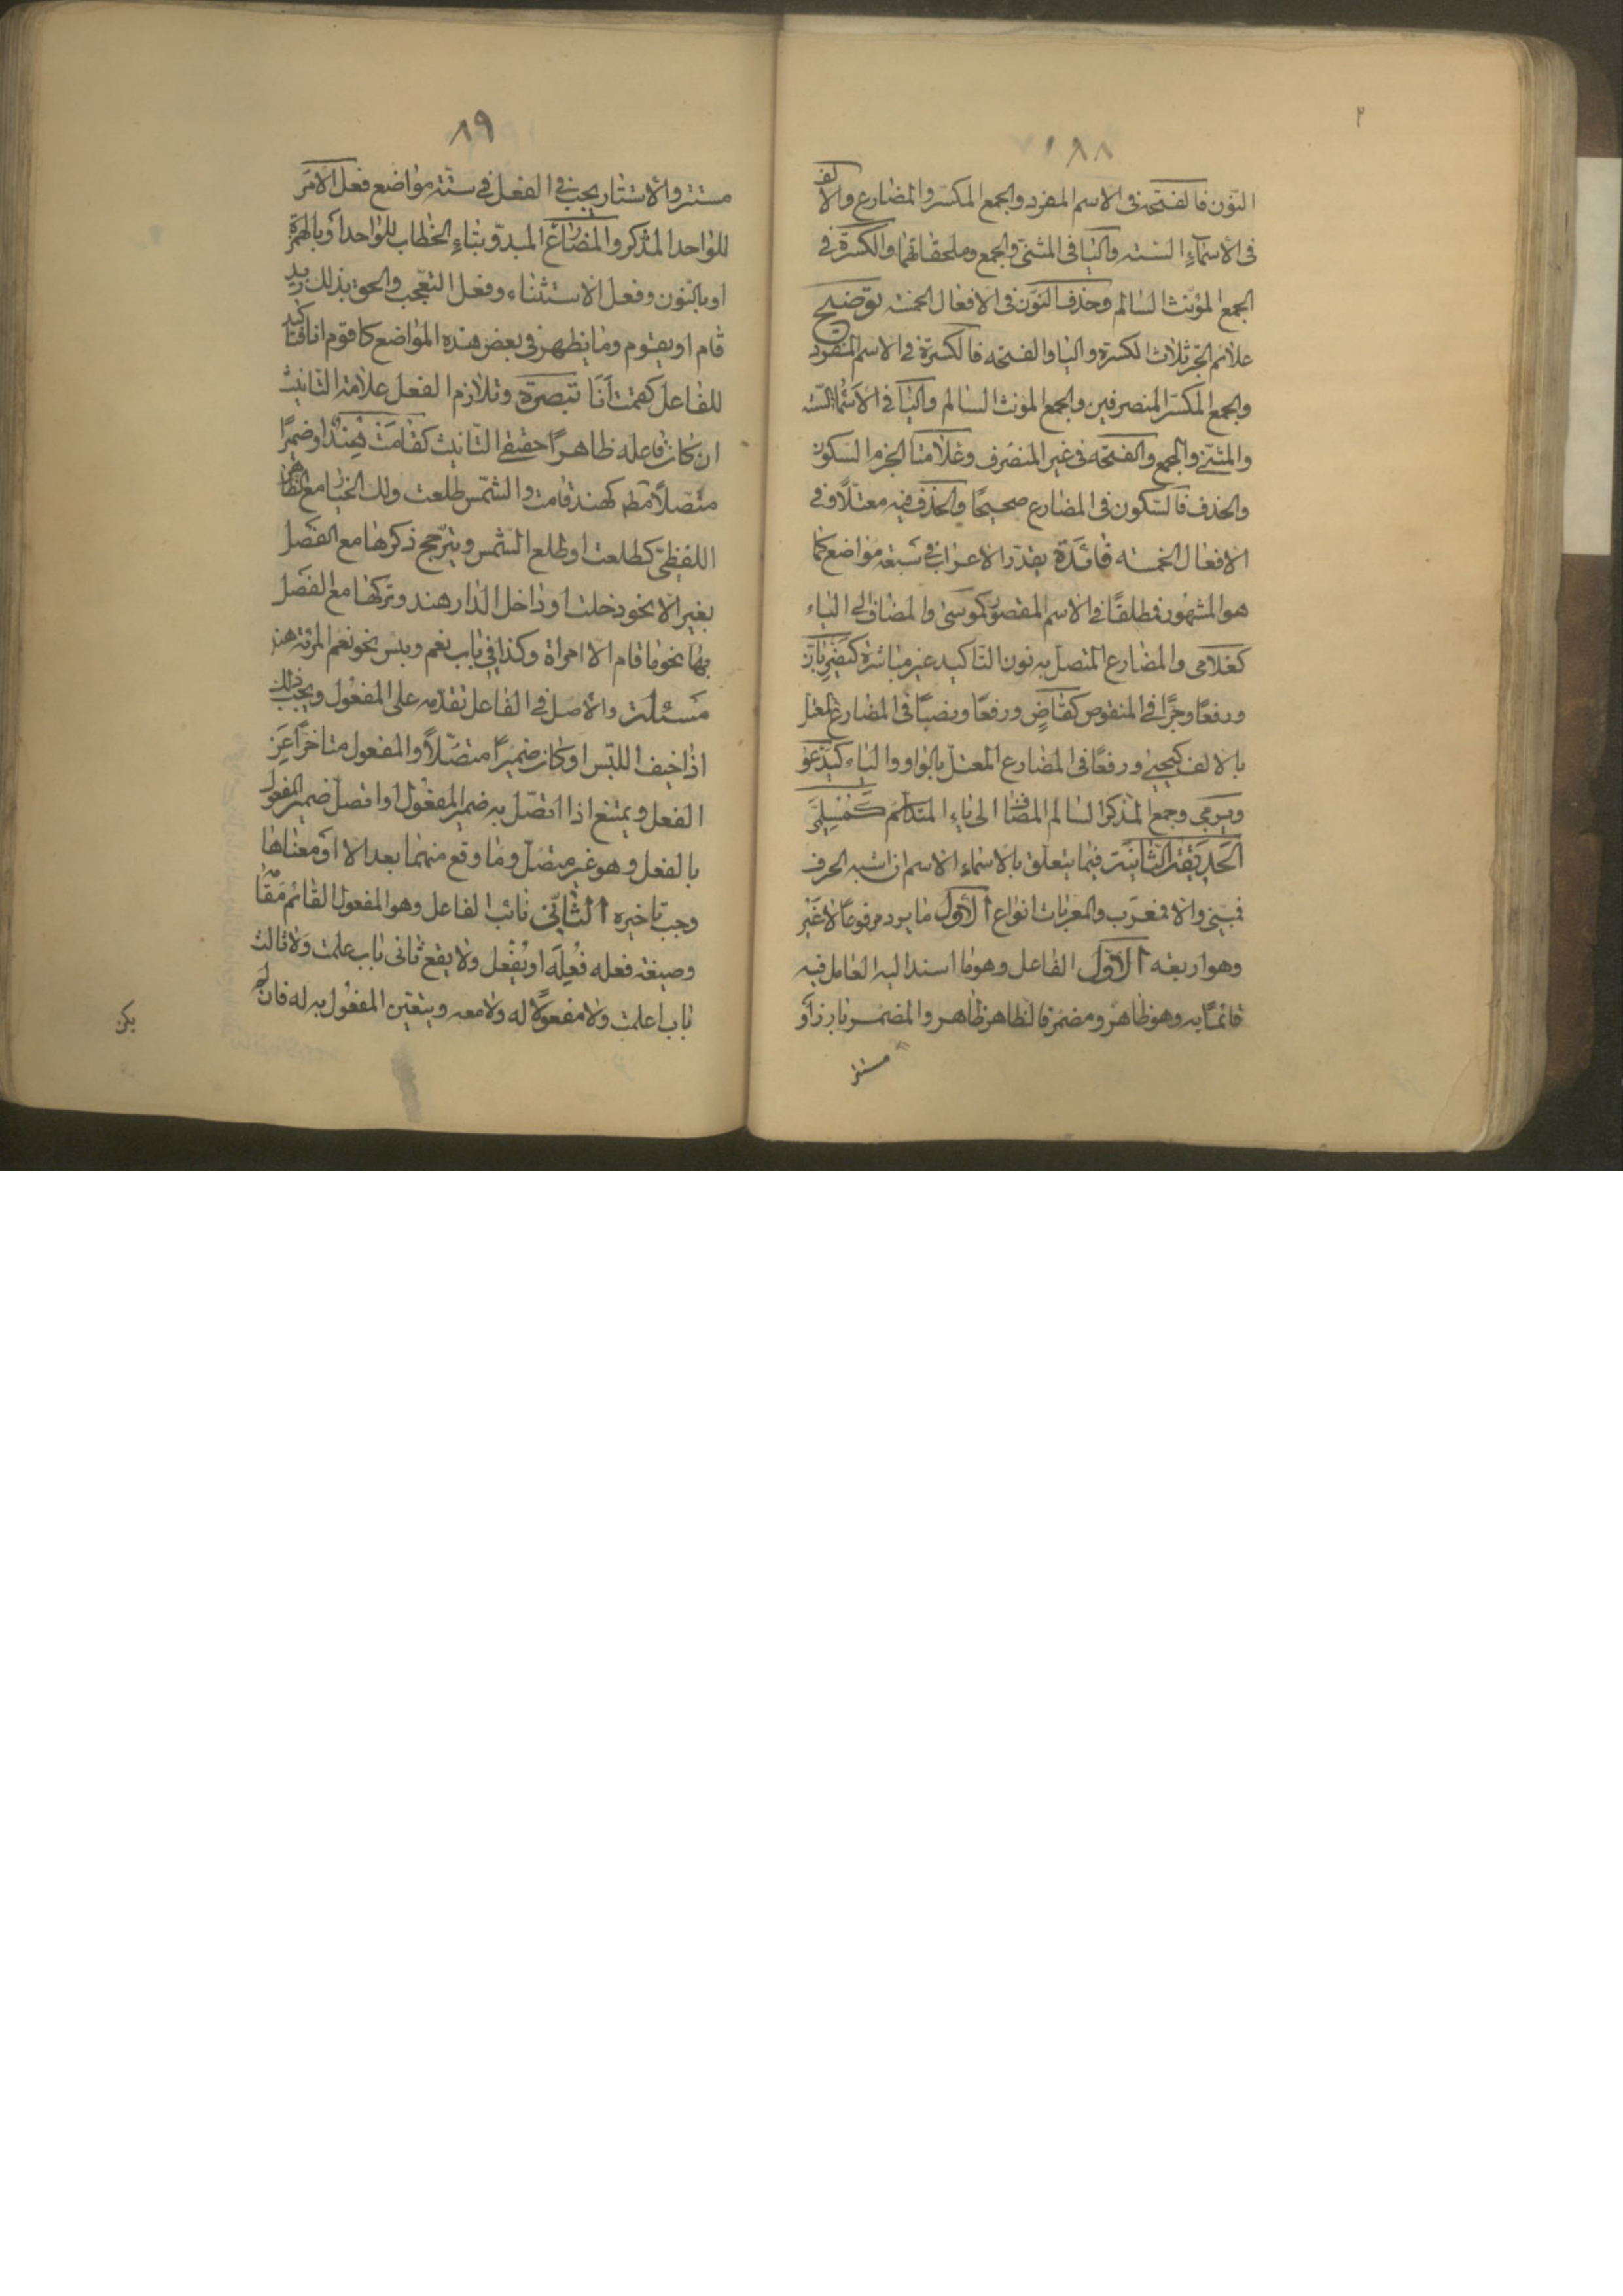 ٢
١٨٨
النّون فالفتحة فى الاسم المفرد والجمع المكسّر والمضارع والالف
فى الأسماء الستة والیا فى المثنى والجمع وملحقاتهما والكسرة فى
الجمع المؤنث السالم وحذف النّون فى الافعال الخمسة توضيح
علائم الجّر ثلاث الكسرة واليا والفتحه فالكسرة فى الاسم المفرد
والجمع المكسّر المنصرفين والجمع المونث السالم واليا فى الأسماء الستّه
والمثنّى والجمع والفتحه فى غير المنصرف وعلامتا الجزم السكون
والحذف فالسّكون فى المضارع صحيحًا والحذف فيه معتلّا وفى
الافعال الخمسه فائدة يقدّر الاعراب فى سبعة مواضع كما
هو المشهور فمطلقًا فى الاسم المقصور كموسى والمضاف الى الياء
كغلامى والمضارع المتصل به نون التاكيد غير مباشرة كيضربانّ
ورفعًا وجرًّا فى المنقوص كقاضٍ ورفعًا ونصبًا فى المضارع المعتل
بالالف كيحيى ورفعًا فى المضارع المعتل بالواو والیاء كيدعو
ويرمى وجمع المذكر السالم المضاف الى ياء المتكلم كمسلمىّ
الحديقة الثّانية فيما يتعلّق بالاسماء الاسم ان اشبه الحرف
فمبنى والا فمعرب والمعربات انواع الأوّل ما يرد مرفوعًا لا غير
وهو اربعه الأوّل الفاعل وهو ما اسند اليه العامل فيه
قائمًا به وهو ظاهر ومضمر فالظاهر ظاهر والمضمر بارز أو
مستتر
٨٩
مستتر والأستتار يجب فى الفعل فى ستّة مواضع فعل الامر
للواحد المذكر والمضارع المبدوّ بتاء الخطاب للواحد أو بالهمزة
او بالنون وفعل الاستثناء وفعل التعجّب والحق بذلك زيد
قام او يقوم وما يظهر فى بعض هذه المواضع كاقوم انا فتاكيد
للفاعل كقمت أنا تبصرة وتلازم الفعل علامة التانيث
ان كان فاعله ظاهرًا حقيقى التّانيث كقامت هند او ضميرًا
متصلًا مطم كهند قامت والشمس طلعت ولك الخيار مع الظاهر
اللفظىّ كطلعت او طلع الشمس ويترجّح ذكرها مع الفصل
بغير الا نحو دخلت او داخل الدار هند وتركها مع الفصل
بها نحو ما قام الّا امراة وكذا فى باب نعم وبئس نحو نعم المرئة هند
مسئلة والأصل فى الفاعل تقدّمه على المفعول ويجب ذلك
اذا خيف اللّبس او كان ضميرًا متصّلًا والمفعول متاخرًا عن
الفعل ويمتنع اذا اتّصل به ضمير المفعول او اتصل ضمير المفعول
بالفعل وهو غير متصل وما وقع منهما بعد الا او معناها
وجب تاخيره الثّانى نائب الفاعل وهو المفعول القائم مقامه
وصيغة فعله فُعِلَ او يُفْعَل ولا يقع ثانى باب علمت ولا ثالث
باب اعلمت ولا مفعولًا له ولا معه ويتعيّن المفعول به له فان لم
يكن